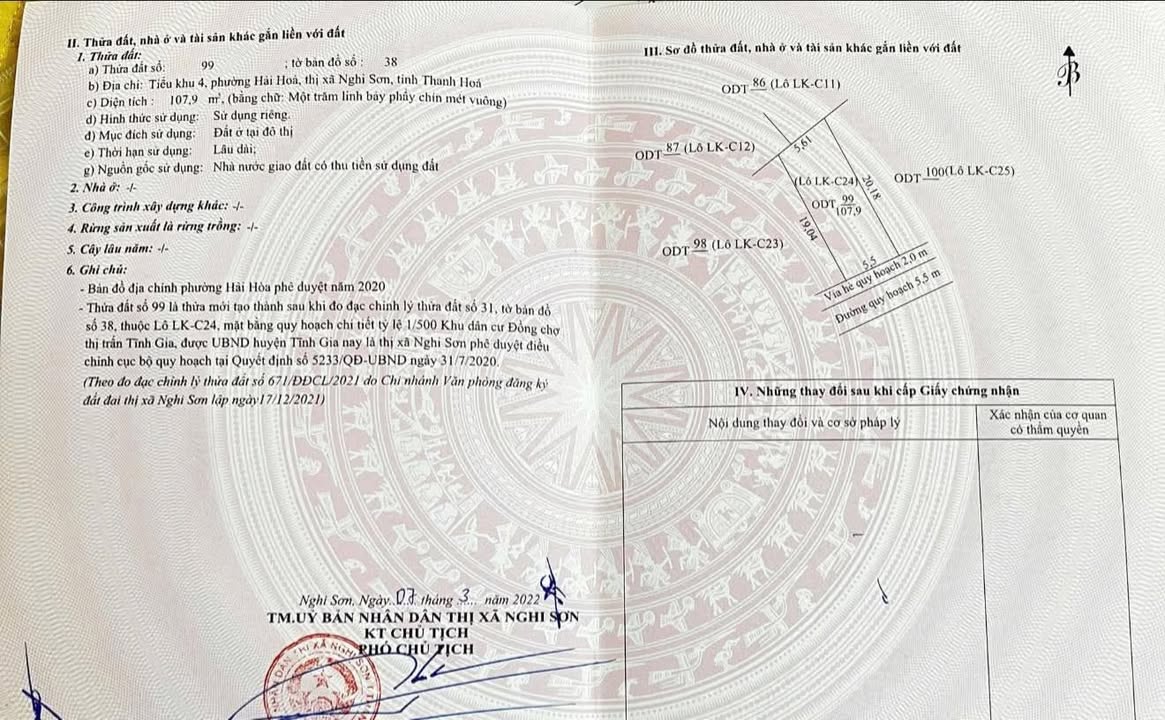 II. Thửa đất, nhà ở và tài sản khác gắn liền với đất
1. Thửa đất:
a) Thửa đất số: 99 ; tờ bản đồ số : 38
b) Địa chỉ: Tiểu khu 4, phường Hải Hoà, thị xã Nghi Sơn, tỉnh Thanh Hoá
c) Diện tích : 107,9 m², (bằng chữ: Một trăm linh bảy phẩy chín mét vuông)
d) Hình thức sử dụng: Sử dụng riêng.
đ) Mục đích sử dụng: Đất ở tại đô thị
e) Thời hạn sử dụng: Lâu dài;
g) Nguồn gốc sử dụng: Nhà nước giao đất có thu tiền sử dụng đất
2. Nhà ở: -/-
3. Công trình xây dựng khác: -/-
4. Rừng sản xuất là rừng trồng: -/-
5. Cây lâu năm: -/-
6. Ghi chú:
- Bản đồ địa chính phường Hải Hòa phê duyệt năm 2020
- Thửa đất số 99 là thửa mới tạo thành sau khi đo đạc chỉnh lý thửa đất số 31, tờ bản đồ
số 38, thuộc Lô LK-C24, mặt bằng quy hoạch chi tiết tỷ lệ 1/500 Khu dân cư Đồng chợ
thị trấn Tĩnh Gia, được UBND huyện Tĩnh Gia nay là thị xã Nghi Sơn phê duyệt điều
chỉnh cục bộ quy hoạch tại Quyết định số 5233/QĐ-UBND ngày 31/7/2020.
(Theo đo đạc chỉnh lý thửa đất số 671/ĐĐCL/2021 do Chi nhánh Văn phòng đăng ký
đất đai thị xã Nghi Sơn lập ngày17/12/2021)
Nghi Sơn, Ngày 07 tháng 3 năm 2022
TM.UỶ BAN NHÂN DÂN THỊ XÃ NGHI SƠN
KT CHỦ TỊCH
PHÓ CHỦ TỊCH
III. Sơ đồ thửa đất, nhà ở và tài sản khác gắn liền với đất
B
ODT 86 (Lô LK-C11)
5,61
ODT 87 (Lô LK-C12)
ODT 100(Lô LK-C25)
(Lô LK-C24)
20,18
ODT 99
107,9
19,04
ODT 98 (Lô LK-C23)
5,5
Vỉa hè quy hoạch 2,0 m
Đường quy hoạch 5,5 m
IV. Những thay đổi sau khi cấp Giấy chứng nhận
Nội dung thay đổi và cơ sở pháp lý
Xác nhận của cơ quan
có thẩm quyền